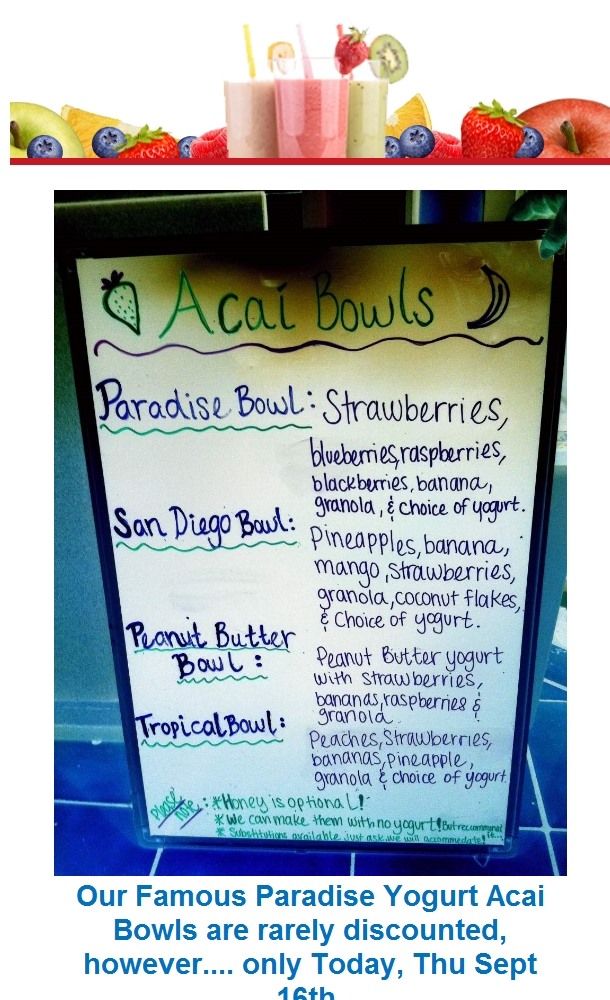 Acai Bowls
Paradise Bowl: Strawberries,
blueberries, raspberries,
blackberries, banana,
granola, & choice of yogurt.
San Diego Bowl: Pineapples, banana,
mango, strawberries,
granola, coconut flakes,
& Choice of yogurt.
Peanut Butter Bowl: Peanut Butter yogurt
with strawberries,
bananas, raspberries &
granola
Tropical Bowl: Peaches, Strawberries,
bananas, pineapple,
granola & choice of yogurt
Please note: *Honey is optional!
*We can make them with no yogurt! But recommend it...
* Substitutions available just ask, we will accommedate!
Our Famous Paradise Yogurt Acai
Bowls are rarely discounted,
however.... only Today, Thu Sept
16th